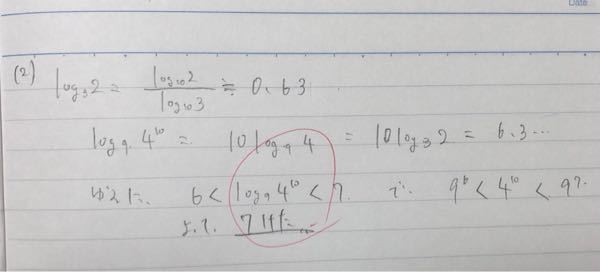 Date
(2) log₃2 = log₁₀2 / log₁₀3 ≒ 0.63
log₉4¹⁰ = 10 log₉4 = 10 log₃2 = 6.3…
ゆえに 6 < log₉4¹⁰ < 7. ∴ 9⁶ < 4¹⁰ < 9⁷.
よって 7けた